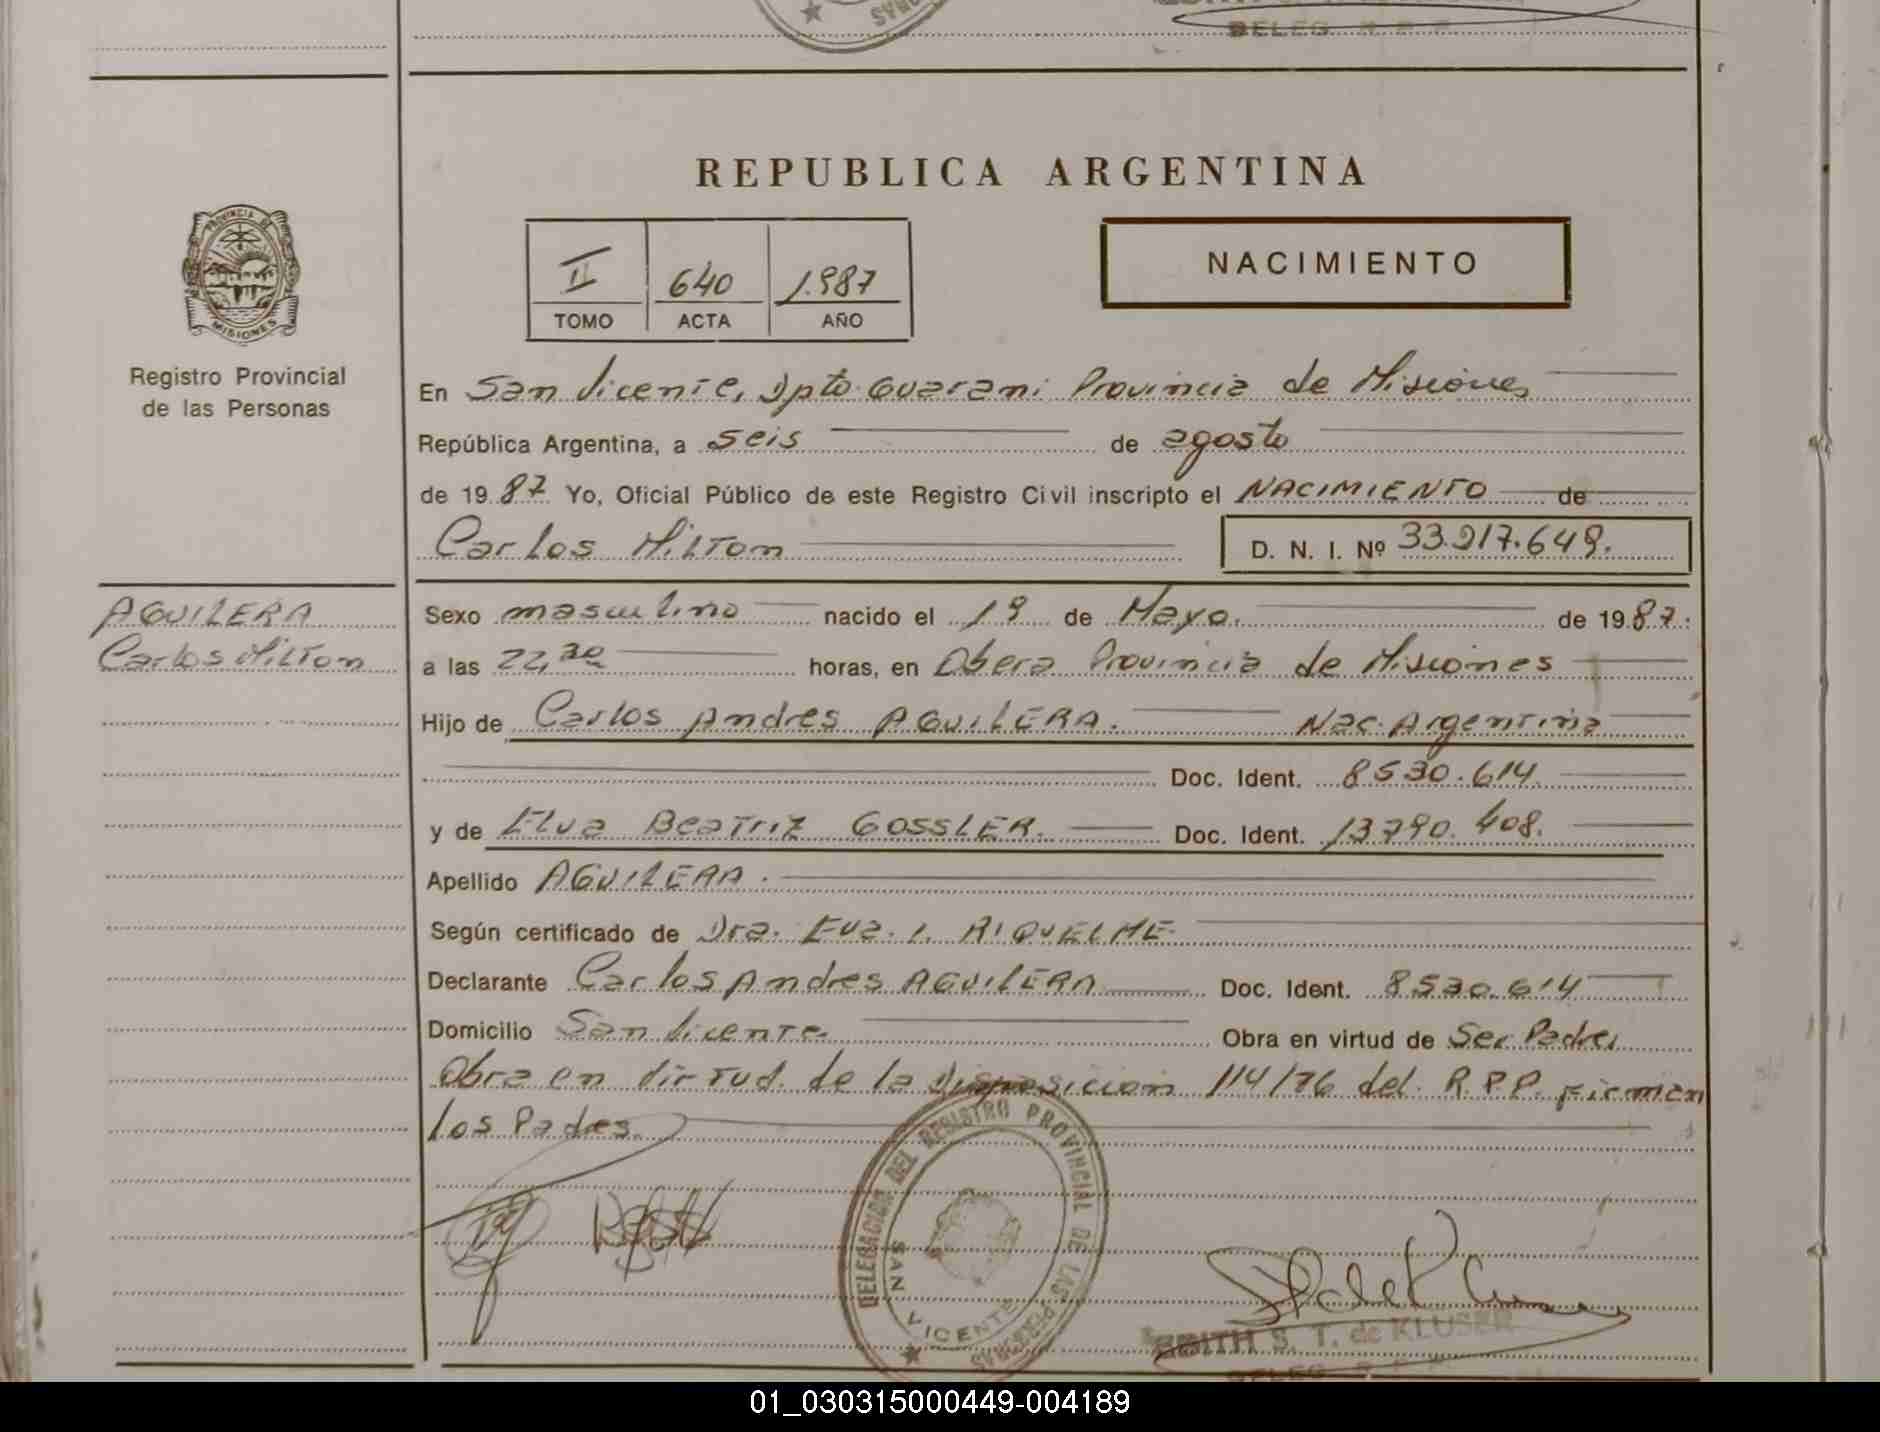 DELEG R P P
REPUBLICA ARGENTINA
PROVINCIA DE
MISIONES
Registro Provincial
de las Personas
II 640 1.987
TOMO ACTA AÑO
NACIMIENTO
En San Vicente, Dpto Guarani Provincia de Misiones
República Argentina, a seis de agosto
de 19 87 Yo, Oficial Público de este Registro Civil inscripto el NACIMIENTO de
Carlos Miltom D. N. I. Nº 33.917.649.
AGUILERA
Carlos Miltom
Sexo masculino nacido el 19 de Mayo. de 19 87.
a las 22,30 horas, en Obera Provincia de Misiones
Hijo de Carlos Andres AGUILERA. Nac. Argentina
Doc. Ident. 8530.614.
y de Elva Beatriz GOSSLER. Doc. Ident. 13.790.408.
Apellido AGUILERA.
Según certificado de Dra. Eva. I. RIQUELME.
Declarante Carlos Andres AGUILERA Doc. Ident. 8.530.614
Domicilio San Vicente. Obra en virtud de Ser Padre,
Obra en Virtud. de la Disposicion 114/76 del. R.P.P. Firman
los Padres.
DELEGACION DEL REGISTRO PROVINCIAL DE LAS PERSONAS
SAN VICENTE
EDITH S. T. de KLUSER
DELEG R P P
01_030315000449-004189